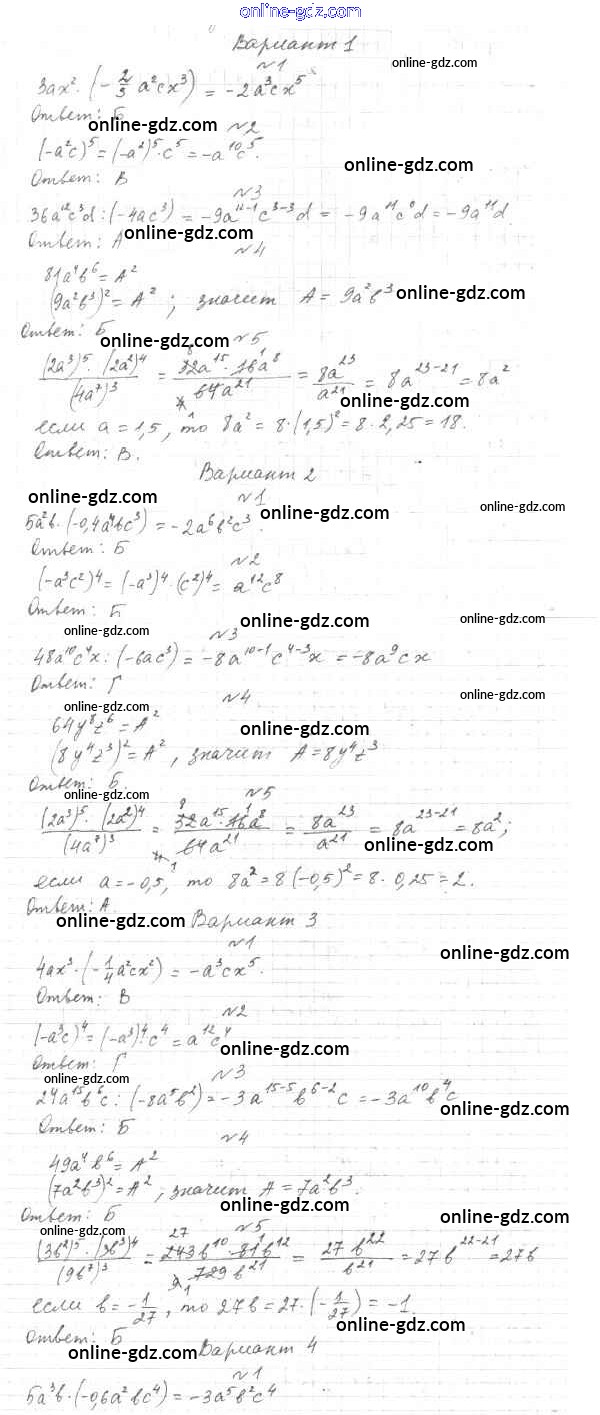 online-gdz.com
Вариант 1
online-gdz.com
№1
3ax² · (-2/3 a²cx³) = -2a³cx⁵
Ответ: Б
online-gdz.com
№2
(-a²c)⁵ = (-a²)⁵ · c⁵ = -a¹⁰c⁵.
online-gdz.com
Ответ: В
№3
36a¹²c³d : (-4ac³) = -9a¹²⁻¹c³⁻³d = -9a¹¹c⁰d = -9a¹¹d
Ответ: А
online-gdz.com
№4
81a⁴b⁶ = A²
(9a²b³)² = A² ; значит A = 9a²b³
online-gdz.com
Ответ: Б
online-gdz.com
№5
(2a³)⁵ · (2a²)⁴ / (4a⁷)³ = 32a¹⁵ · 16a⁸ / 64a²¹ = 8a²³ / a²¹ = 8a²³⁻²¹ = 8a²
online-gdz.com
если a = 1,5, то 8a² = 8 · (1,5)² = 8 · 2,25 = 18.
Ответ: В.
Вариант 2
online-gdz.com
№1
online-gdz.com
5a²b · (-0,4a⁴bc³) = -2a⁶b²c³.
online-gdz.com
Ответ: Б
№2
(-a³c²)⁴ = (-a³)⁴ · (c²)⁴ = a¹²c⁸
Ответ: Б
online-gdz.com
online-gdz.com
online-gdz.com
№3
48a¹⁰c⁴x : (-6ac³) = -8a¹⁰⁻¹c⁴⁻³x = -8a⁹cx
Ответ: Г
online-gdz.com
№4
online-gdz.com
64y⁸z⁶ = A²
online-gdz.com
(8y⁴z³)² = A², значит A = 8y⁴z³
Ответ: Б.
online-gdz.com
№5
(2a³)⁵ · (2a²)⁴ / (4a⁷)³ = 32a¹⁵ · 16a⁸ / 64a²¹ = 8a²³ / a²¹ = 8a²³⁻²¹ = 8a²;
online-gdz.com
если a = -0,5, то 8a² = 8(-0,5)² = 8 · 0,25 = 2.
Ответ: А.
online-gdz.com
Вариант 3
№1
online-gdz.com
4ax³ · (-1/4 a²cx²) = -a³cx⁵.
Ответ: В
№2
(-a³c)⁴ = (-a³)⁴ · c⁴ = a¹²c⁴
online-gdz.com
Ответ: Г
№3
online-gdz.com
24a¹⁵b⁶c : (-8a⁵b²) = -3a¹⁵⁻⁵b⁶⁻²c = -3a¹⁰b⁴c
online-gdz.com
Ответ: Б
№4
49a⁴b⁶ = A²
(7a²b³)² = A², значит A = 7a²b³.
online-gdz.com
Ответ: Б
online-gdz.com
№5
(3b²)⁵ · (3b³)⁴ / (9b⁷)³ = 243b¹⁰ · 81b¹² / 729b²¹ = 27b²² / b²¹ = 27b²²⁻²¹ = 27b
online-gdz.com
если b = -1/27, то 27b = 27 · (-1/27) = -1.
Ответ: Б
online-gdz.com
online-gdz.com
Вариант 4
№1
5a³b · (-0,6a²bc⁴) = -3a⁵b²c⁴